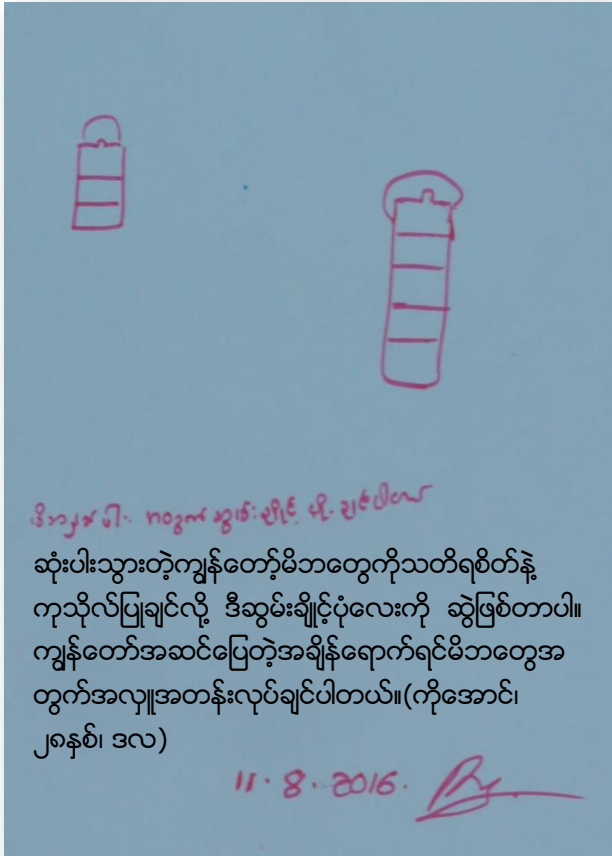 မိဘနှစ်ပါး အတွက် ဆွမ်းချိုင့် ပို့ချင်ပါတယ်
ဆုံးပါးသွားတဲ့ကျွန်တော့်မိဘတွေကိုသတိရစိတ်နဲ့
ကုသိုလ်ပြုချင်လို့ ဒီဆွမ်းချိုင့်ပုံလေးကို ဆွဲဖြစ်တာပါ။
ကျွန်တော်အဆင်ပြေတဲ့အချိန်ရောက်ရင်မိဘတွေအ
တွက်အလှူအတန်းလုပ်ချင်ပါတယ်။(ကိုအောင်၊
၂၈နှစ်၊ ဒလ)
11.8.2016.